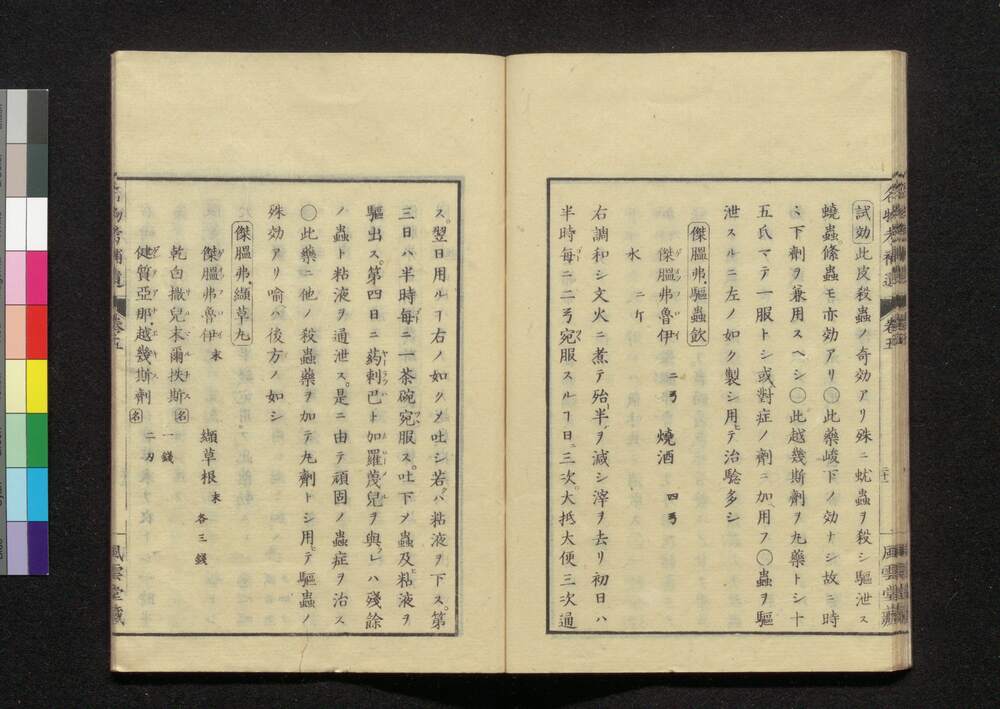 試効 此皮殺蟲ノ奇効アリ殊ニ蚘蟲ヲ殺シ驅泄ス
蟯蟲。絛蟲モ亦効アリ〇此藥峻下ノ効ナシ故ニ時
々下劑ヲ兼用スヘシ〇此越幾斯劑ヲ丸藥トシ十
五氏マテ一服トシ或ハ對症ノ劑ニ加用フ〇蟲ヲ驅
泄スルニ左ノ如ク製シ用ヒテ治驗多シ
傑膃弗驅蟲飲
傑膃弗魯伊 二ヲ 燒酒 四ヲ
水 二斤
右調和シ文火ニ煮テ殆半ヲ減シ滓ヲ去リ初日ハ
半時毎ニ二ヲ宛服スルヿ日ニ三次。大抵大便三次通
ス。翌日用ルヿ右ノ如クメ吐シ若ハ粘液ヲ下ス。第
三日ハ半時毎ニ一茶碗宛服ス。吐下メ蟲及粘液ヲ
驅出ス。第四日ニ葯剌巴ト加羅蔑兒ヲ與フレハ殘餘
ノ蟲ト粘液ヲ通泄ス。是ニ由テ頑固ノ蟲症ヲ治ス
〇此藥ニ他ノ殺蟲藥ヲ加テ丸劑トシ用ヒテ驅蟲ノ
殊効アリ喻ハ後方ノ如シ
傑膃弗纈草丸
傑膃弗魯伊 末 纈草根 末 各三錢
乾白撒兒末爾扶斯 名 一錢
健質亞那越幾斯劑 名 二刃
卷五
風雲堂藏
卷五
風雲堂藏